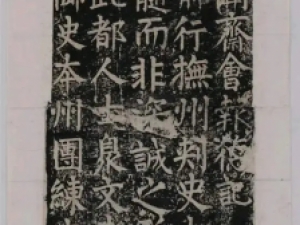 齋會報德記
行撫州刺史
而非深誠之
此都人士泉文
御史本州團練